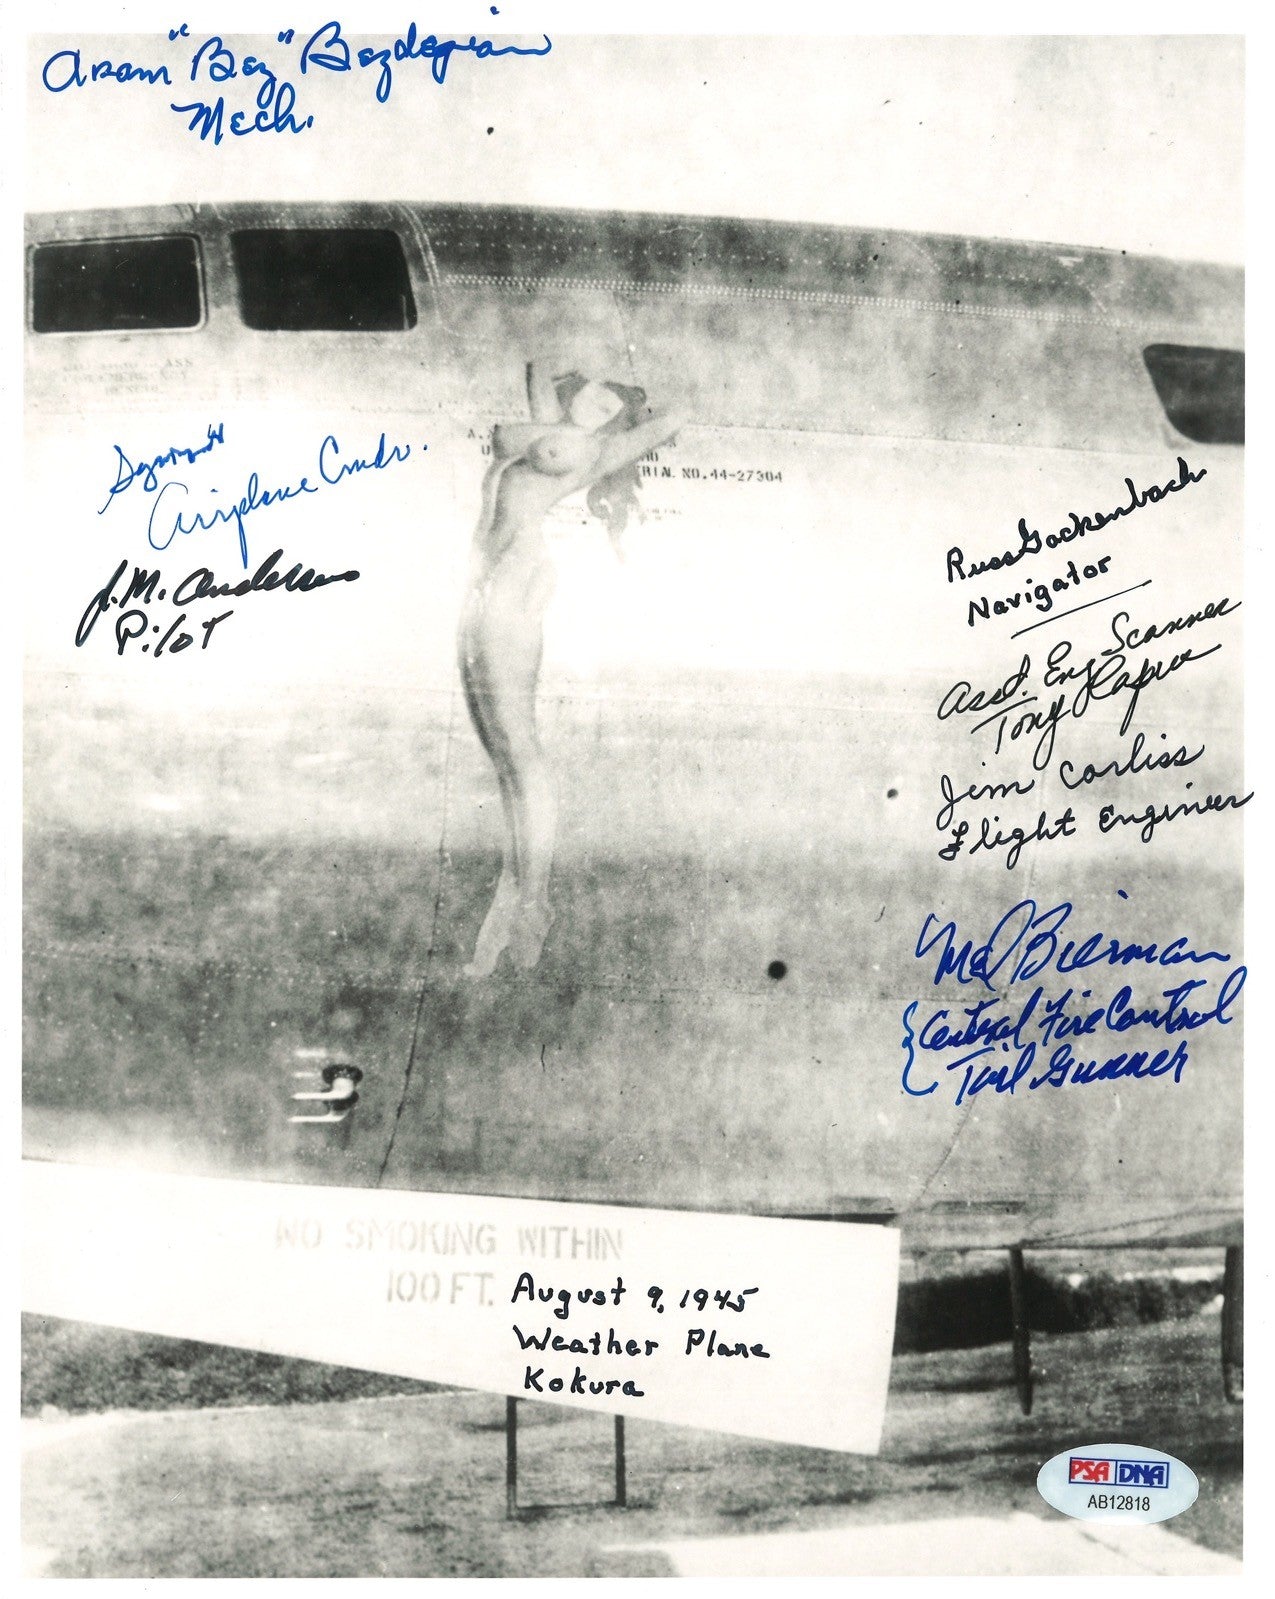 Aram "Baz" Bazdegian
Mech.
A.
U
NO
RIAL NO.44-27304
Airplane Cmdr.
J.M. Anderson
Pilot
Russ Gackenbach
Navigator
Asst. Eng Scanner
Tony Capua
Jim Corliss
Flight Engineer
Mel Bierman
Central Fire Control
Tail Gunner
NO SMOKING WITHIN
100 FT.
August 9, 1945
Weather Plane
Kokura
PSA DNA
AB12818